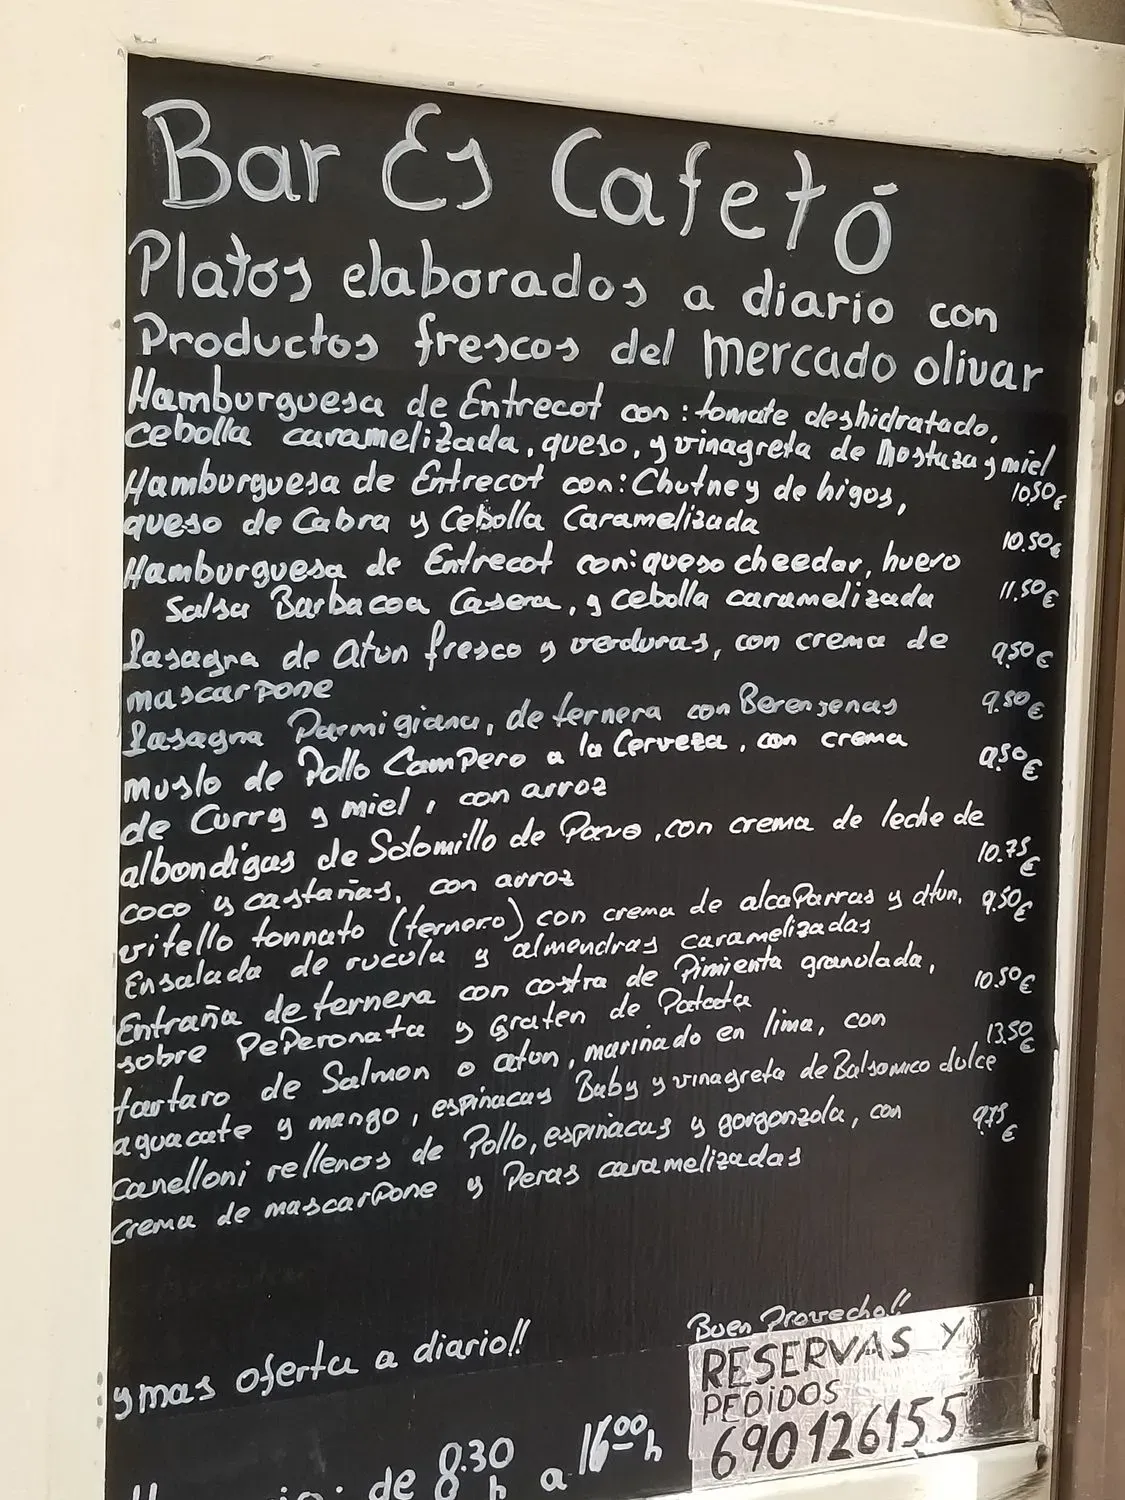 Bar Es Cafetó
Platos elaborados a diario con
Productos frescos del mercado olivar
Hamburguesa de Entrecot con: tomate deshidratado,
cebolla caramelizada, queso, y vinagreta de Mostaza y miel
10.50€
Hamburguesa de Entrecot con: Chutney de higos,
queso de Cabra y Cebolla Caramelizada
10.50€
Hamburguesa de Entrecot con: queso cheedar, huevo
Salsa Barbacoa Casera, y cebolla caramelizada
11.50€
Lasagna de atun fresco y verduras, con crema de
mascarpone
9.50€
Lasagna Parmigiana, de ternera con Berenjenas
9.50€
muslo de Pollo Campero a la Cerveza, con crema
de Curry y miel, con arroz
9.50€
albondigas de Solomillo de Pavo, con crema de leche de
coco y castañas, con arroz
10.75€
vitello tonnato (ternero) con crema de alcaparras y atun,
9.50€
Ensalada de rucula y almendras caramelizadas
Entraña de ternera con costra de Pimienta granulada,
10.50€
sobre Peperonata y Graten de Patata
tartaro de Salmon o atun, marinado en lima, con
13.50€
aguacate y mango, espinacas Baby y vinagreta de Balsamico dulce
Canelloni rellenos de Pollo, espinacas y gorgonzola, con
9.75€
crema de mascarpone y Peras caramelizadas
y mas oferta a diario!!
Buen Provecho!!
RESERVAS Y
PEDIDOS
690126155
de 8.30 h a 16:00 h